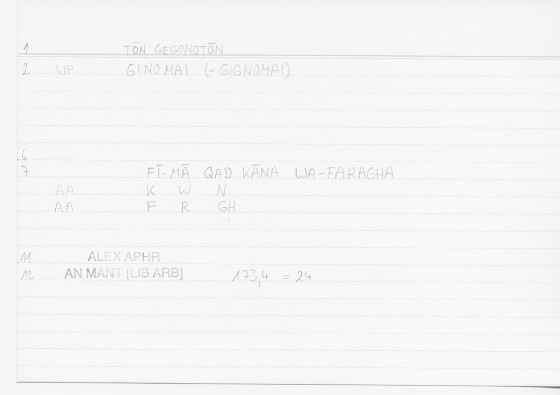 1 TŌN GEGONOTŌN
2 WP GINOMAI (= GIGNOMAI)
6
7 FĪ-MĀ QAD KĀNA WA-FARAGHA
AA K W N
AA F R GH
11 ALEX APHR
12 AN MANT [LIB ARB] 173,4 = 24